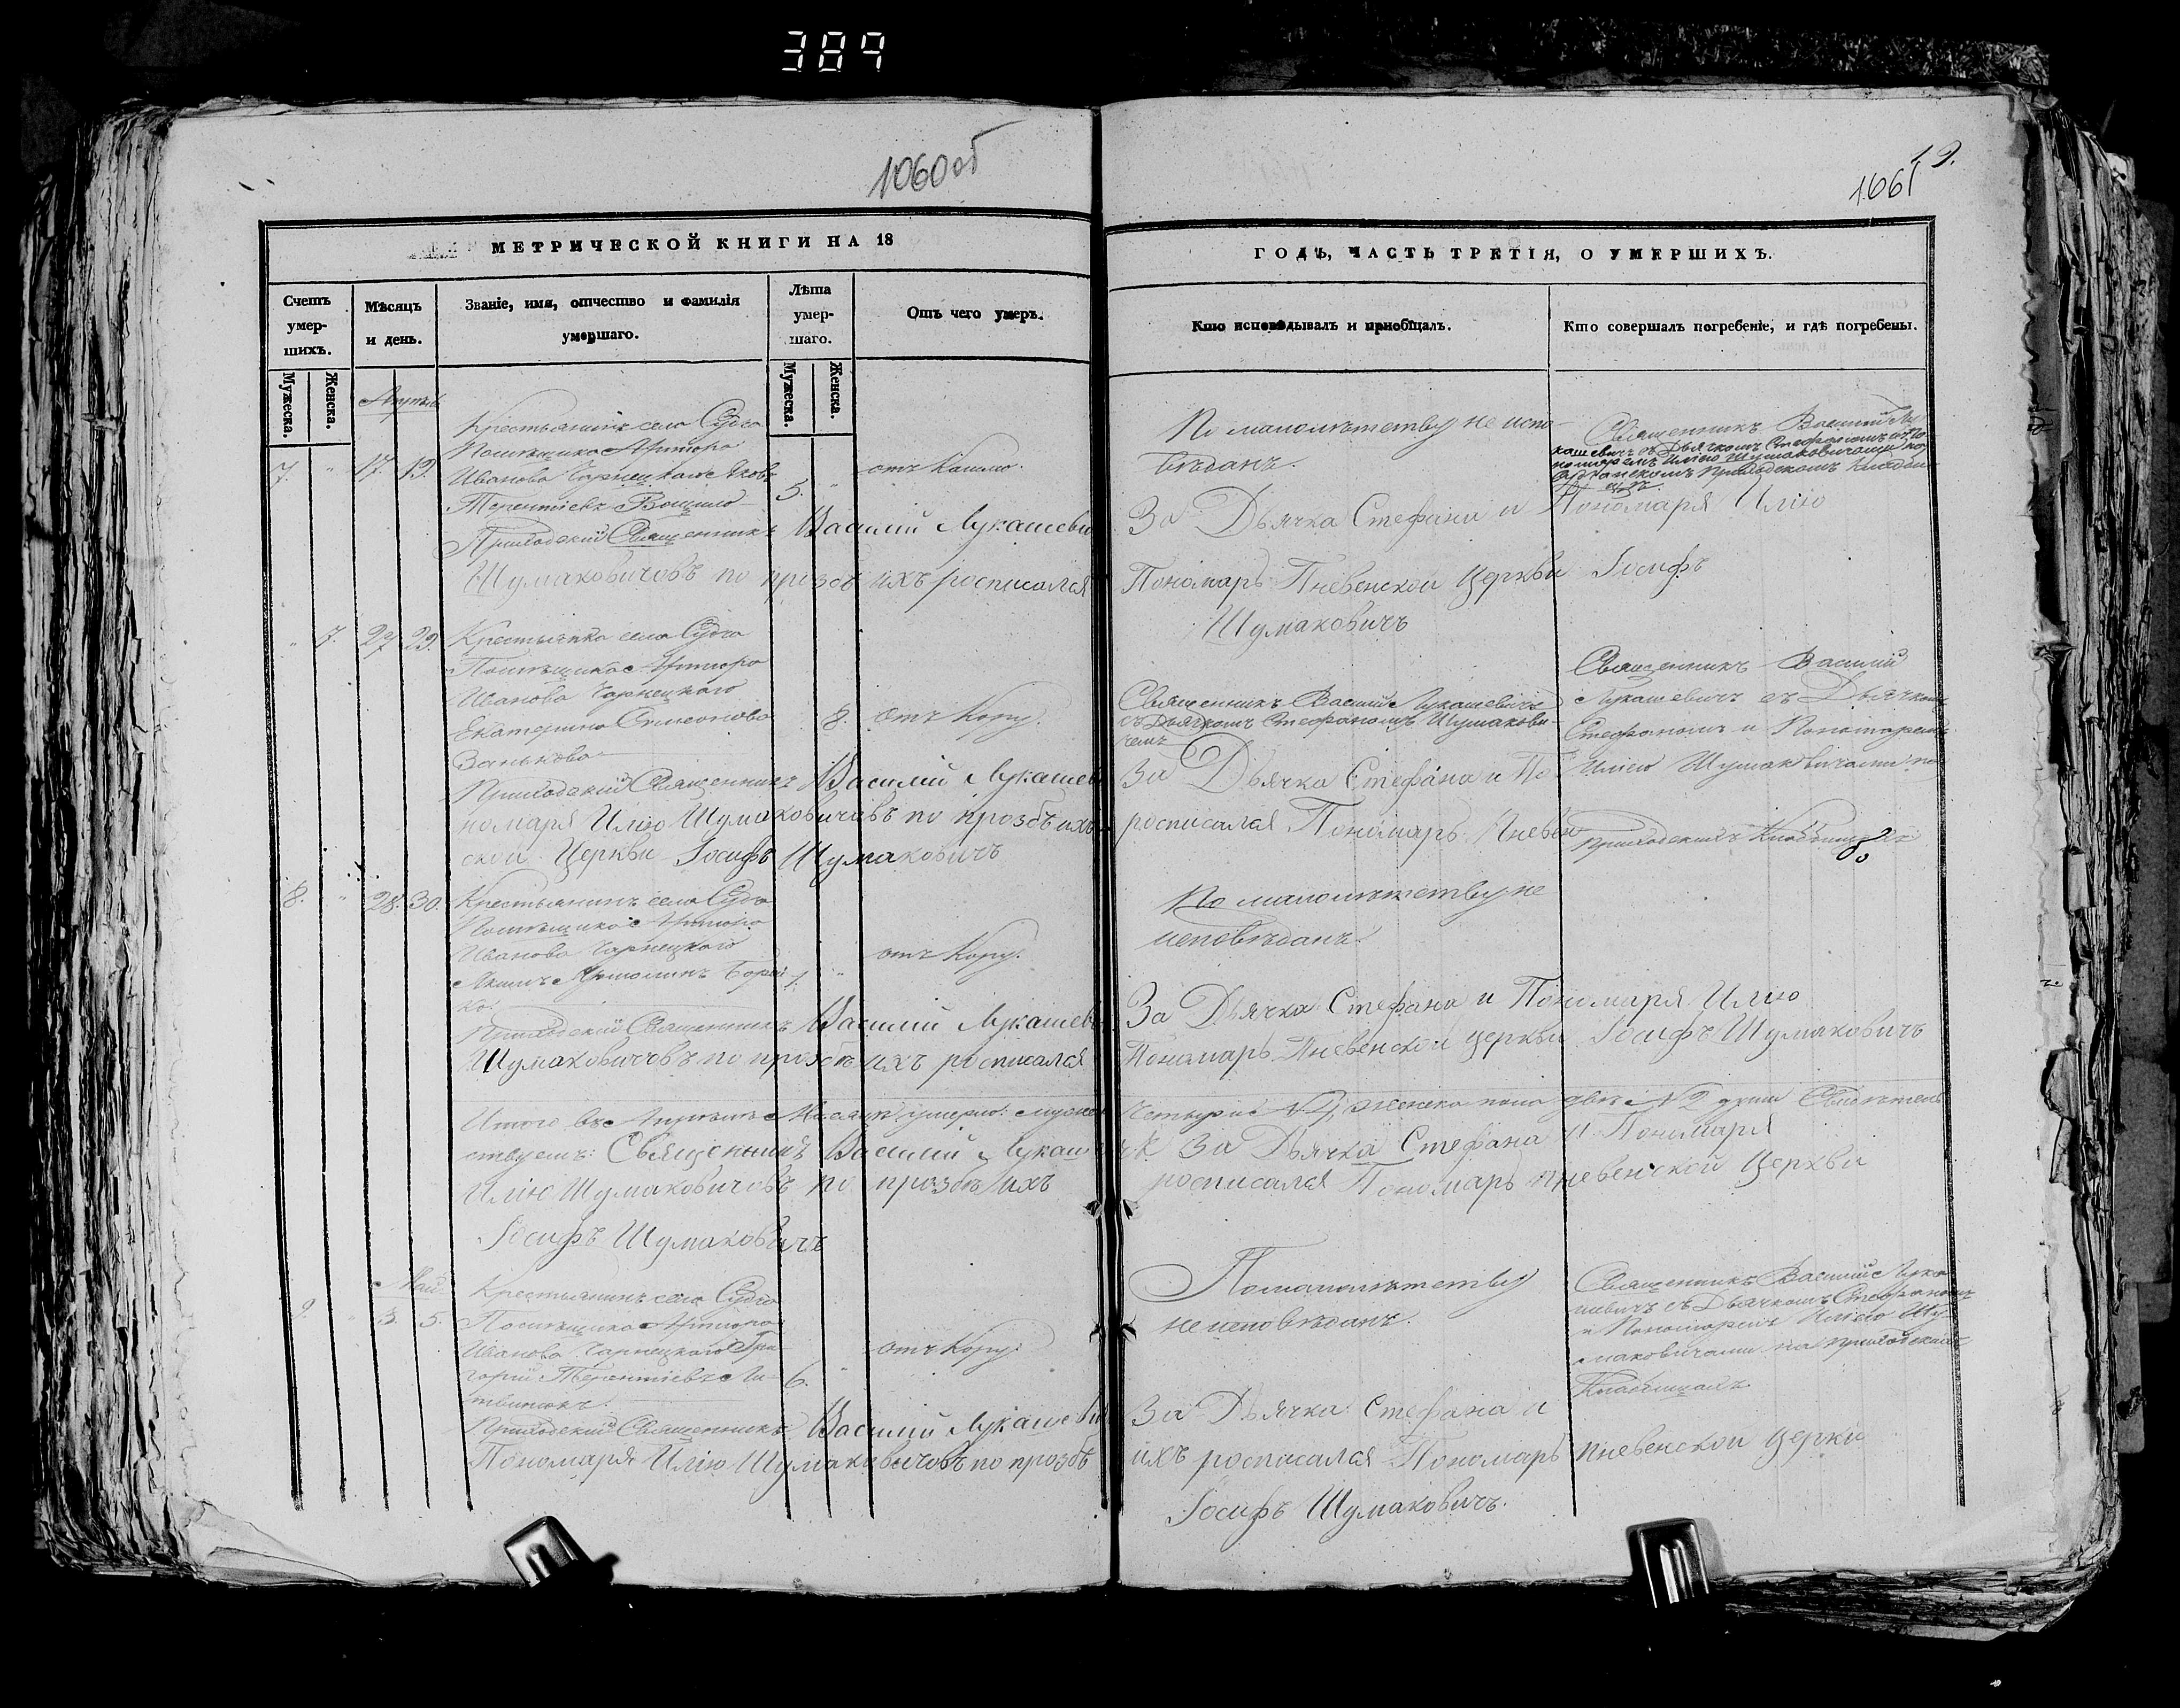 389
1060об
19.
1661
МЕТРИЧЕСКОЙ КНИГИ НА 18
ГОДЪ, ЧАСТЬ ТРЕТІЯ, О УМЕРШИХЪ.
Счетъ умер-шихъ.
Мужеска.
Женска.
Мѣсяцъ и день.
Званіе, имя, отчество и фамилія умершаго.
Лѣта умер-шаго.
Мужеска.
Женска.
Отъ чего умеръ.
Кто исповѣдывалъ и пріобщалъ.
Кто совершалъ погребеніе, и гдѣ погребены.
Апрѣль
7. " 17. 19.
Крестьянинъ села Судча
Помѣщика Артура
Иванова Чарнецкаго Яковъ
Терентіевъ
5. "
отъ Кашлю.
По малолѣтству не испо-
вѣданъ.
Священникъ Василій Лу-
кашевичъ съ Дьячкомъ Стефаномъ и По-
номаремъ Иліею Шумаковичами на
Приходскомъ Кладби-
щѣ.
Приходскій Священникъ Василій Лукашевичъ
За Дьячка Стефана и Пономаря Илію
Шумаковичовъ по прозбѣ ихъ росписался
Пономарь Пневенской Церкви Іосифъ
Шумаковичъ
" 7. 27 29.
Крестьянка села Судча
Помѣщика Артура
Иванова Чарнецкаго
Екатерина Симеонова
Занькова
8. отъ Кору.
Священникъ Василій Лукашевичъ
съ Дьячкомъ Стефаномъ Шумакови-
чемъ
Священникъ Василій
Лукашевичъ съ Дьячкомъ
Стефаномъ и Пономаремъ
Иліею Шумаковичами на
Приходскихъ Кладбищахъ
Приходскій Священникъ Василій Лукашевичъ
За Дьячка Стефана и По
номаря Илію Шумаковичовъ по прозбѣ ихъ
росписался Пономарь Пневен
ской Церкви Іосифъ Шумаковичъ
8. " 28. 30.
Крестьянинъ села Судча
Помѣщика Артура
Иванова Чарнецкаго
1. "
отъ Кору.
По малолѣтству не
исповѣданъ.
Приходскій Священникъ Василій Лукашевичъ
За Дьячка Стефана и Пономаря Илію
Шумаковичовъ по прозбѣ ихъ росписался
Пономарь Пневенской церкви Іосифъ Шумаковичъ
Итого въ Апрѣлѣ Мѣсяцѣ умерло: мужеска
четыре женска пола двѣ 2 души Свидѣтель
ствуемъ: Священникъ Василій Лукашевичъ
За Дьячка Стефана и Пономаря
Илію Шумаковичовъ по прозбѣ ихъ
росписался Пономарь Пневенской Церкви
Іосифъ Шумаковичъ
Май
9. 3. 5.
Крестьянинъ села Судча
Помѣщика Артура
Иванова Чарнецкаго Гри-
горій Терентіевъ Ли-
твинюкъ.
6. "
отъ Кору.
По малолѣтству
не исповѣданъ.
Священникъ Василій Лука
шевичъ съ Дьячкомъ Стефаномъ
и Пономаремъ Иліею Шу-
маковичами на приходскихъ
Кладбищахъ
Приходскій Священникъ Василій Лукашевичъ
За Дьячка Стефана и
Пономаря Илію Шумаковичовъ по прозбѣ
ихъ росписался Пономарь Пневенской Церкви
Іосифъ Шумаковичъ.